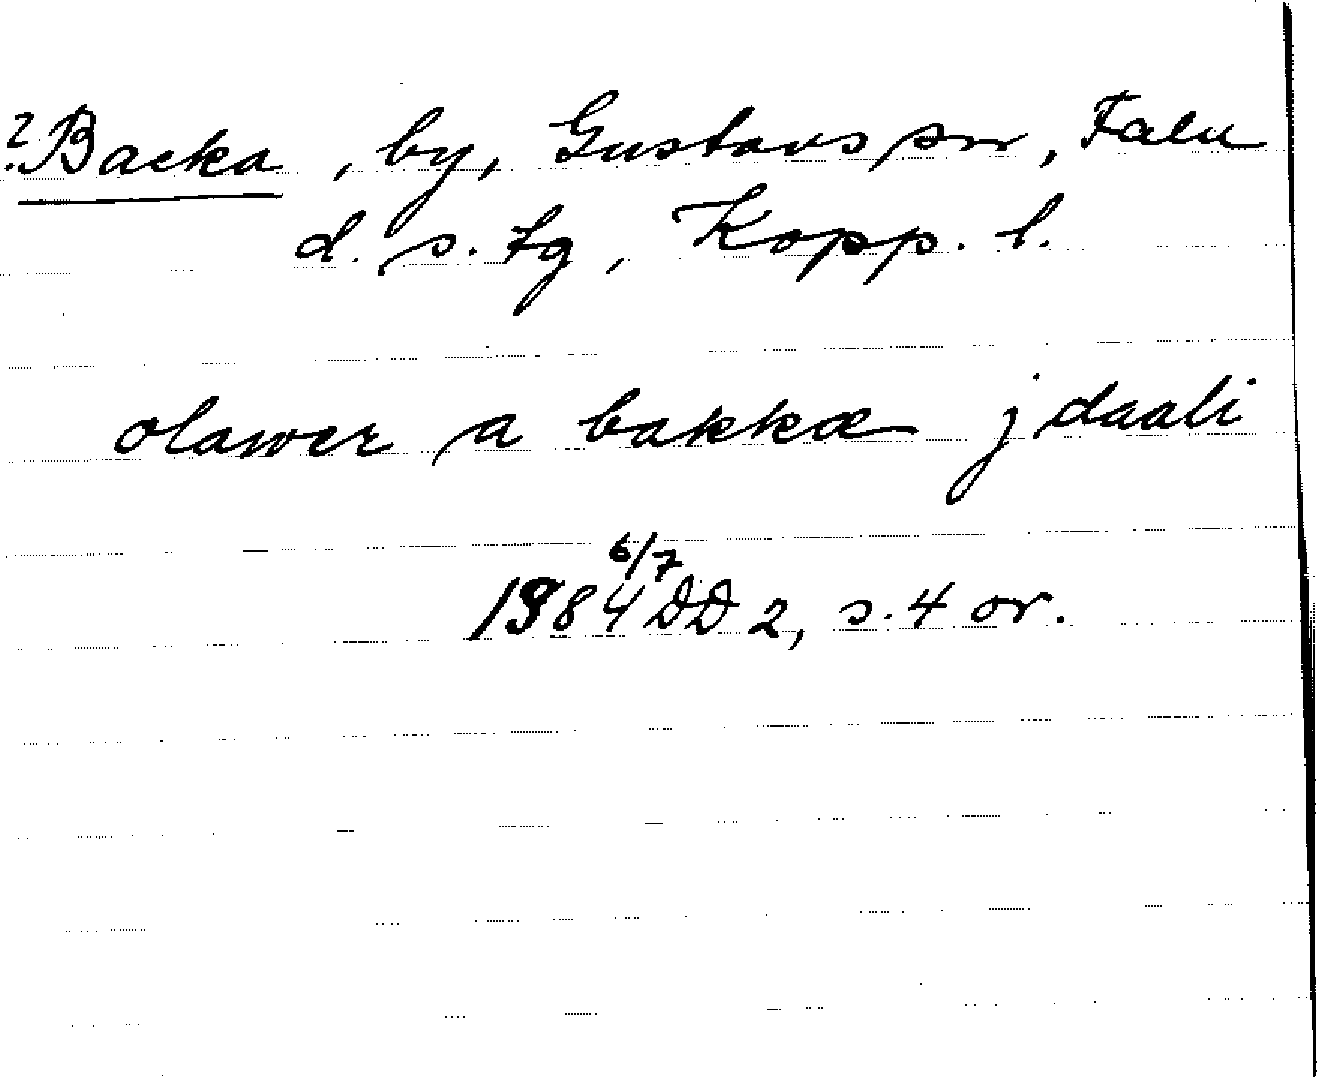 ? Backa, by, Gustavs sn, Falu
d. s. fg, Kopp. l.
olawer a bakkæ j daali
6/7
1384 DD 2, s. 4 or.